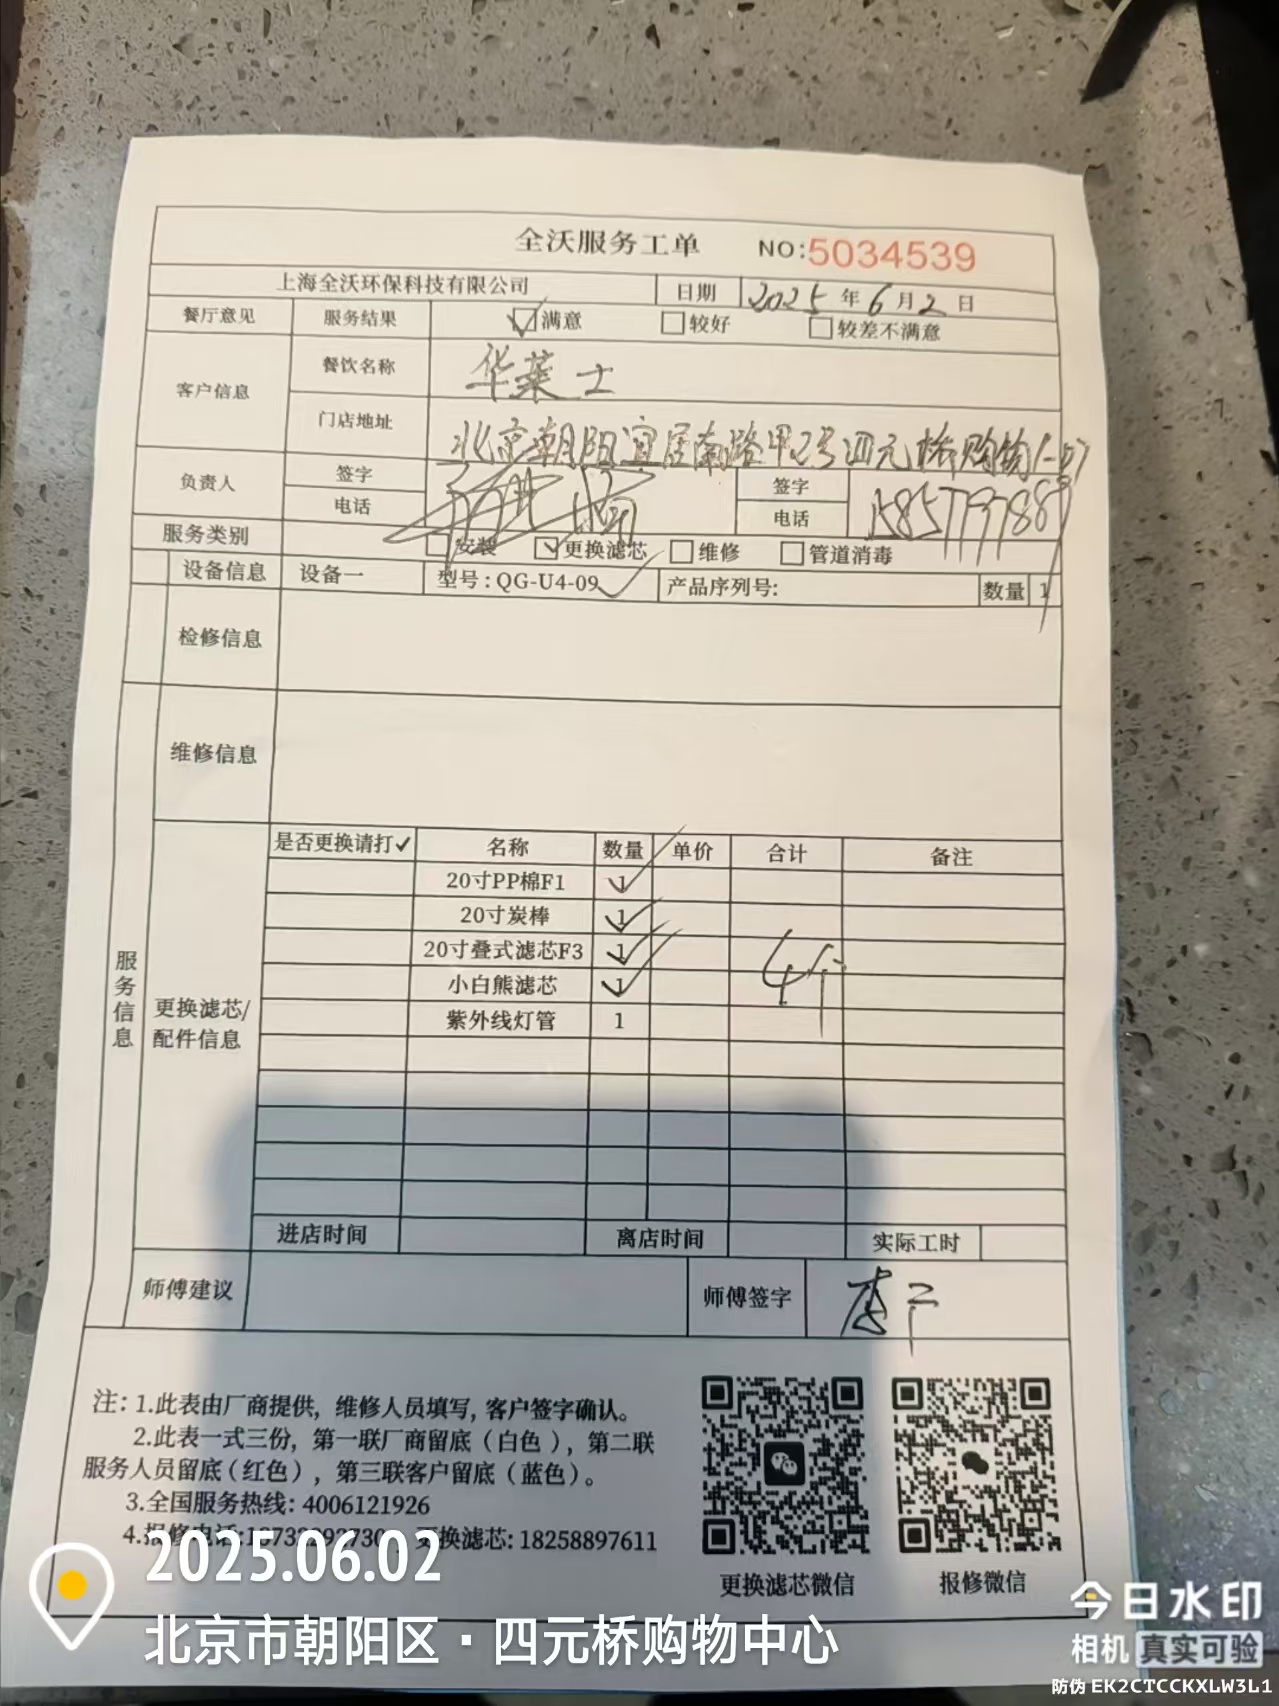 全沃服务工单 NO:5034539
上海全沃环保科技有限公司 日期 2025 年 6 月 2 日
餐厅意见 服务结果 满意 较好 较差不满意
客户信息 餐饮名称 华莱士
门店地址 北京朝阳宜居南路甲2号四元桥购物
负责人 签字 签字
电话 电话
服务类别 安装 更换滤芯 维修 管道消毒
设备信息 设备一 型号:QG-U4-09 产品序列号: 数量 1
检修信息
维修信息
服务信息
更换滤芯/配件信息
是否更换请打✓ 名称 数量 单价 合计 备注
20寸PP棉F1 1
20寸炭棒 1
20寸叠式滤芯F3 1
小白熊滤芯 1
紫外线灯管 1
4个
进店时间 离店时间 实际工时
师傅建议 师傅签字
注:1.此表由厂商提供,维修人员填写,客户签字确认。
2.此表一式三份,第一联厂商留底(白色),第二联
服务人员留底(红色),第三联客户留底(蓝色)。
3.全国服务热线:4006121926
4.报修电话: 更换滤芯:18258897611
更换滤芯微信 报修微信
2025.06.02
北京市朝阳区·四元桥购物中心
今日水印
相机 真实可验
防伪 EK2CTCCKXLW3L1